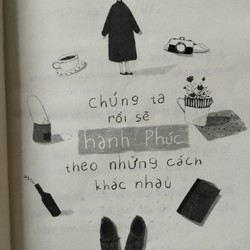 chúng ta
rồi sẽ
hạnh phúc
theo những cách
khác nhau